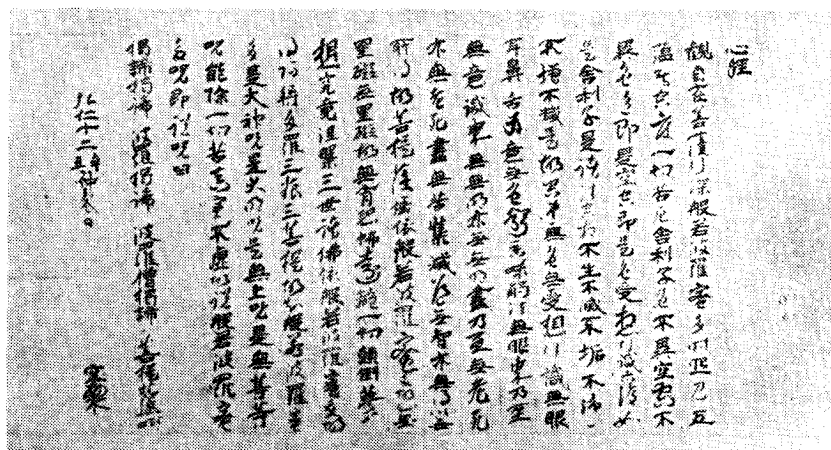 心経
觀自在菩薩行深般若波羅蜜多時照見五
蘊皆空度一切苦厄舍利子色不異空空不
異色色即是空空即是色受想行識亦復如
是舍利子是諸法空相不生不滅不垢不淨
不增不減是故空中無色無受想行識無眼
耳鼻舌身意無色聲香味觸法無眼界乃至
無意識界無無明亦無無明盡乃至無老死
亦無老死盡無苦集滅道無智亦無得以無
所得故菩提薩埵依般若波羅蜜多故無
罣礙無罣礙故無有恐怖遠離一切顛倒夢
想究竟涅槃三世諸佛依般若波羅蜜多故
得阿耨多羅三藐三菩提故知般若波羅蜜
多是大神呪是大明呪是無上呪是無等等
呪能除一切苦真實不虛故說般若波羅蜜
多呪即說呪曰
揭諦揭諦 波羅揭諦 波羅僧揭諦 菩提娑婆訶
弘仁十二年仲冬日